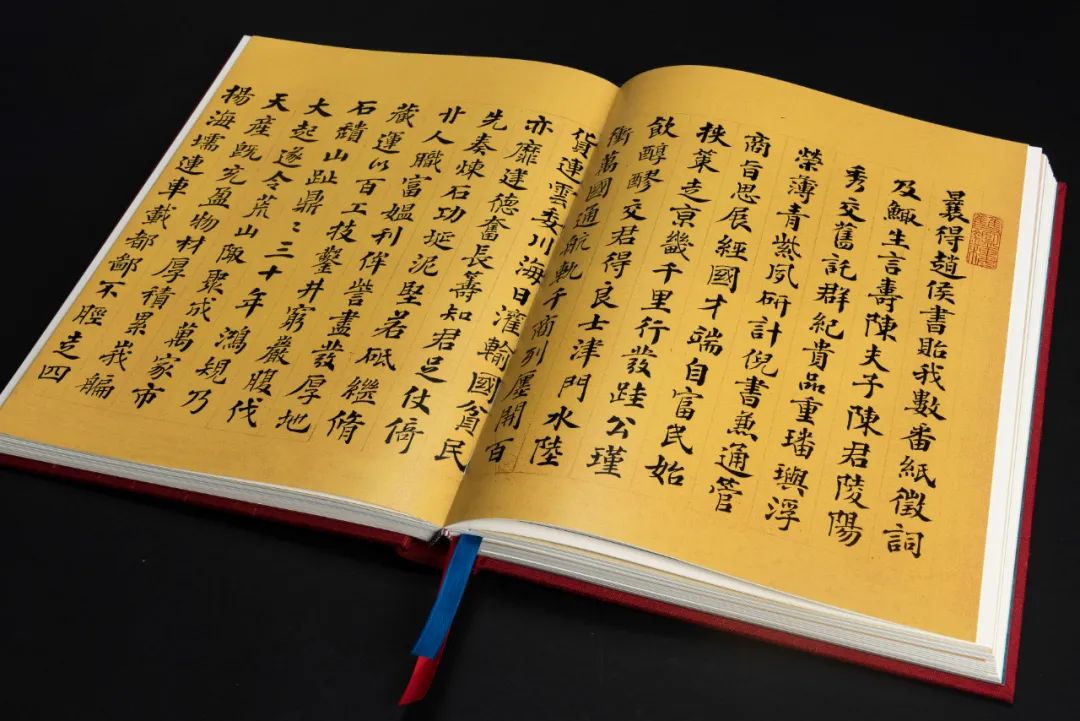 曩得趙侯書貽我數番紙徵詞
及鯫生言壽陳夫子陳君陵陽
秀交舊託群紀貴品重璠璵浮
榮薄青紫夙研計倪書兼通管
商旨思展經國才端自富民始
挾策走京畿千里行發跬公瑾
飲醇醪交君得良士津門水陸
衝萬國通航軌千商列廛開百
貨連雲委川海日灌輸國貧民
亦靡建德奮長籌知君足仗倚
先秦煉石功埏泥堅若砥繼脩
廿人職富媼利伴訾畫發厚地
藏運以百工技鑿井窮巖腹伐
石繢山趾鼎〻三十年鴻規乃
大起遂令荒山陬聚成萬家市
天產既充盈物材厚積累峩艑
揚海壖連車載都鄙不脛走四